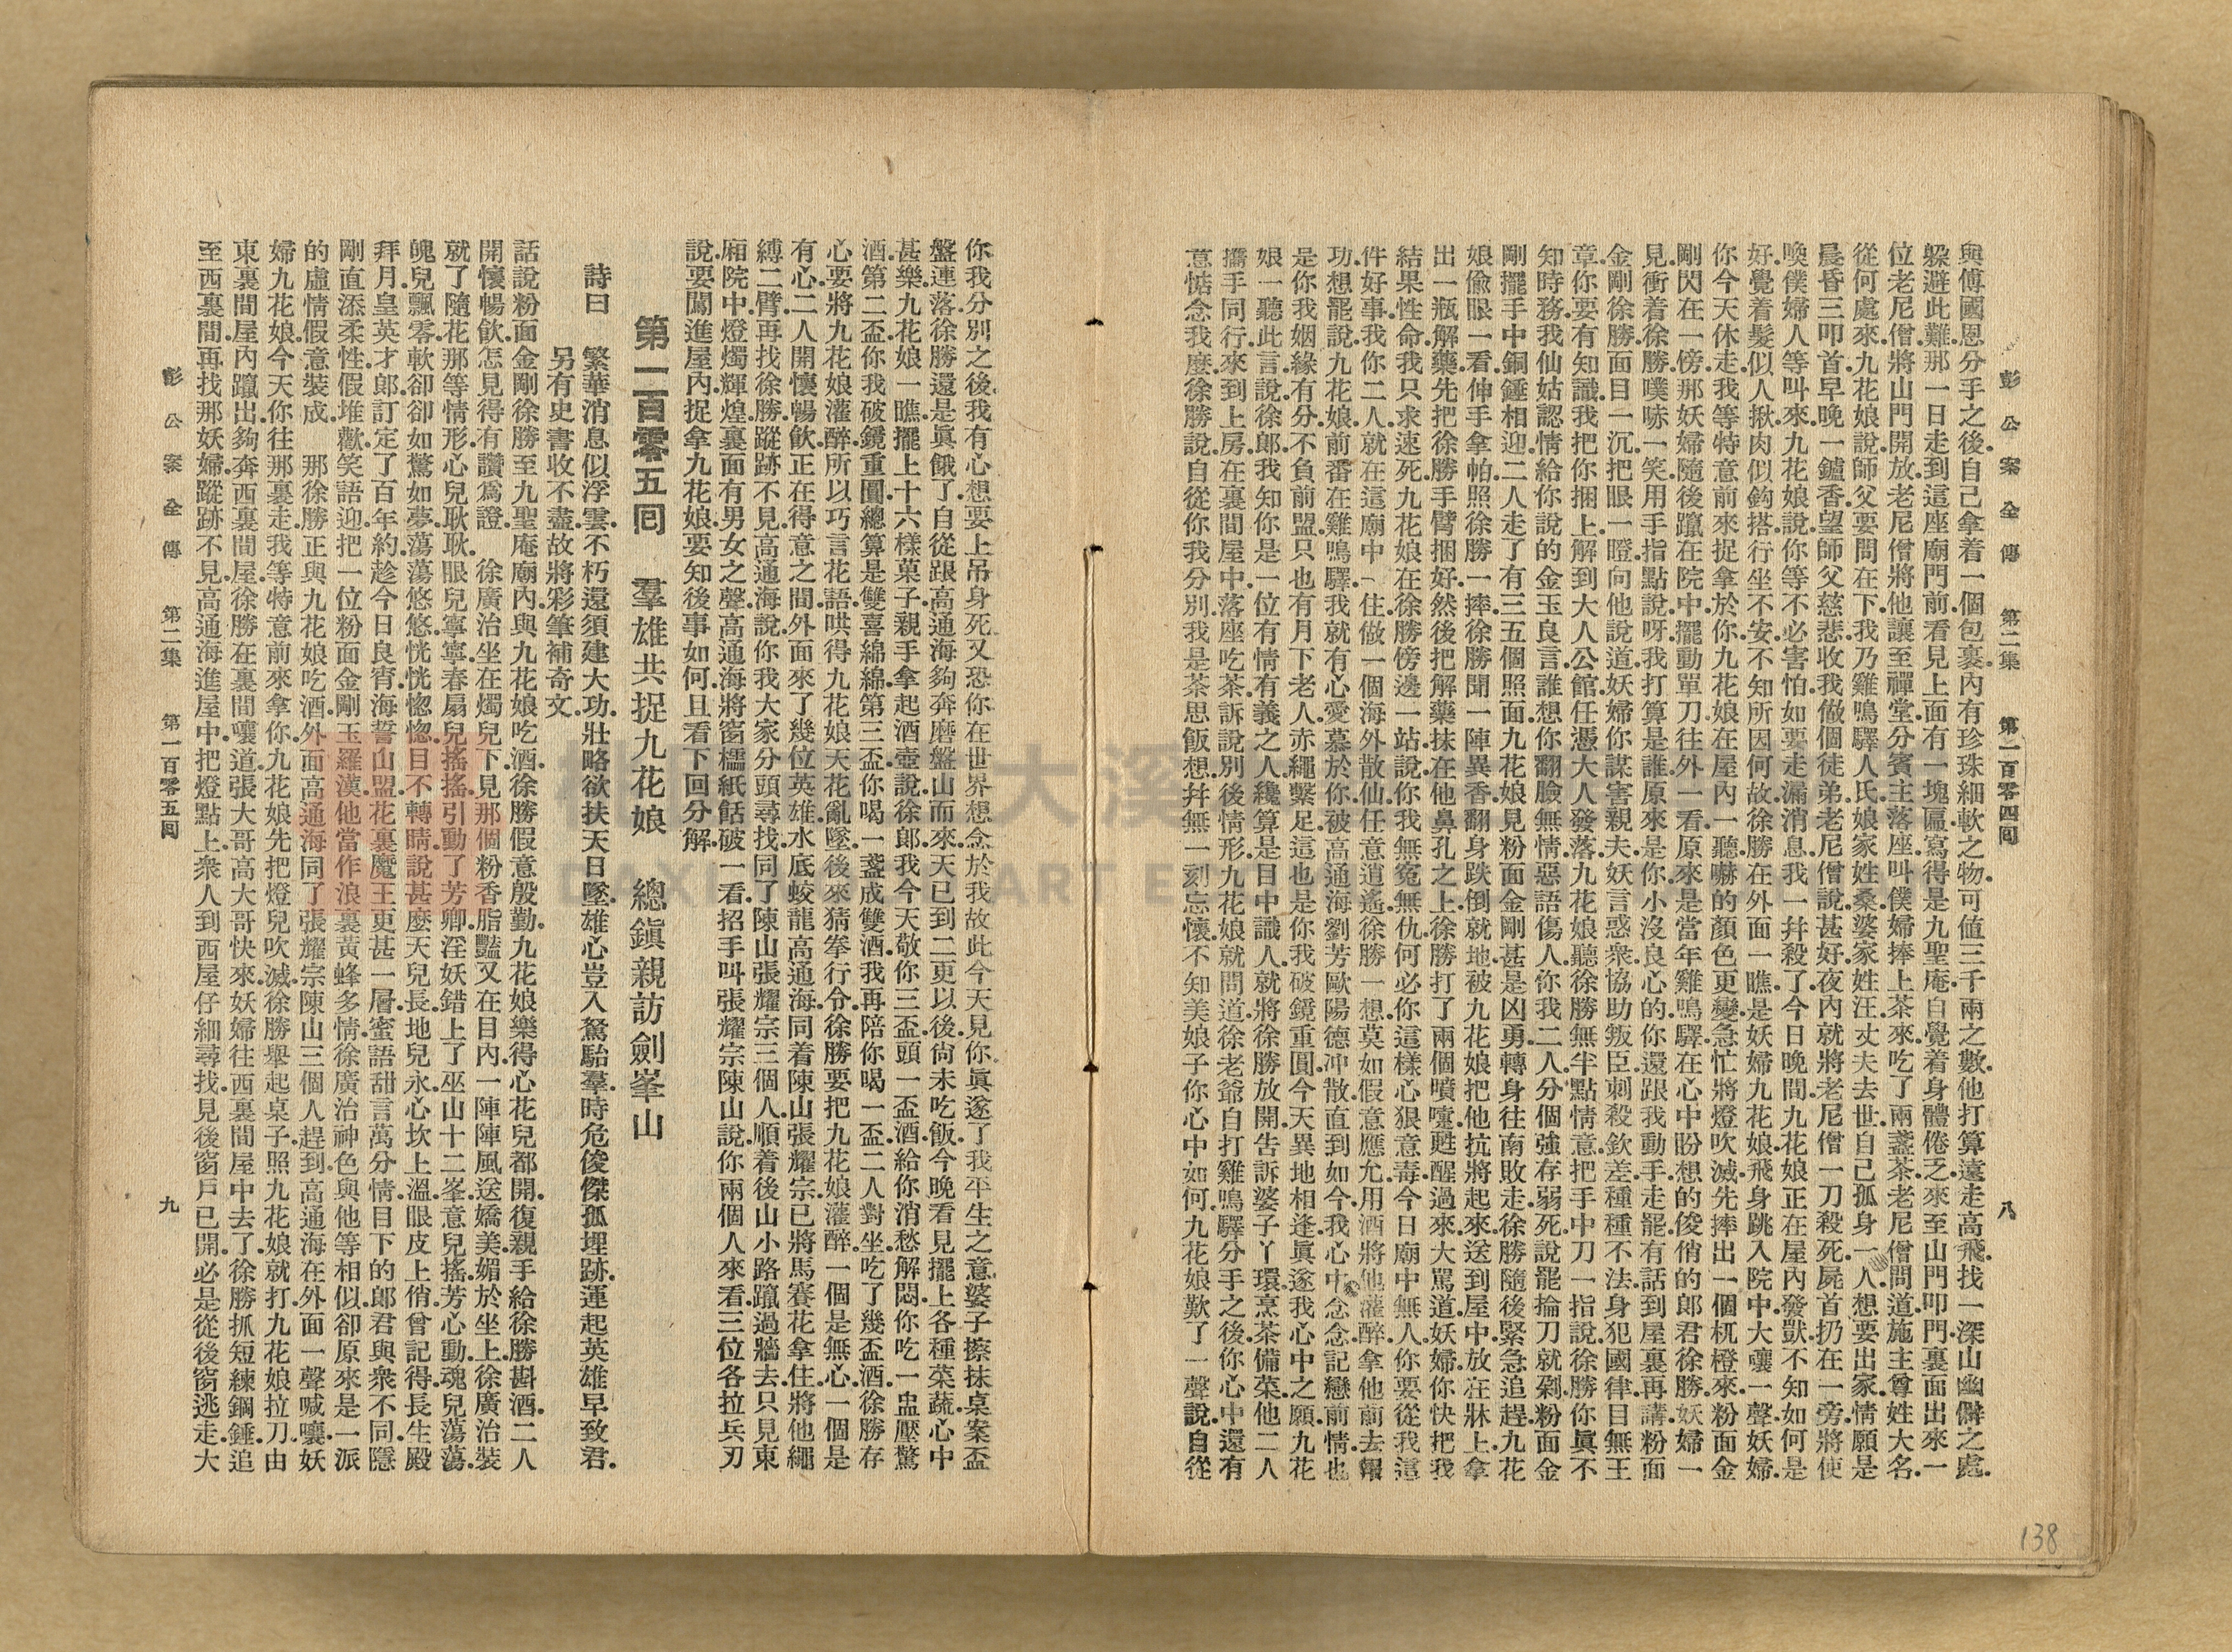 彭公案全傳　第二集　第一百零四囘　八
與傅國恩分手之後自己拿着一個包裹內有珍珠細軟之物可値三千兩之數他打算遠走高飛找一深山幽僻之處
躲避此難那一日走到這座廟門前看見上面有一塊匾寫得是九聖庵自覺着身體倦乏來至山門叩門裏面出來一
位老尼僧將山門開放老尼僧將他讓至禪堂分賓主落座叫僕婦捧上茶來吃了兩盞茶老尼僧問道施主尊姓大名
從何處來九花娘說師父要問在下我乃雞鳴驛人氏娘家姓桑婆家姓汪丈夫去世自己孤身一人想要出家情願是
晨昏三叩首早晚一鑪香望師父慈悲收我做個徒弟老尼僧說甚好夜內就將老尼僧一刀殺死屍首扔在一旁將使
喚僕婦人等叫來九花娘說你等不必害怕如要走漏消息我一幷殺了今日晚間九花娘正在屋內發獃不知如何是
好覺着髮似人揪肉似鈎搭行坐不安不知所因何故徐勝在外面一瞧是妖婦九花娘飛身跳入院中大嚷一聲妖婦
你今天休走我等特意前來捉拿於你九花娘在屋內一聽嚇的顏色更變急忙將燈吹滅先摔出一個杌櫈來粉面金
剛閃在一傍那妖婦隨後躥在院中擺動單刀往外一看原來是當年雞鳴驛在心中盼想的俊俏的郎君徐勝妖婦一
見衝着徐勝噗哧一笑用手指點說呀我打算是誰原來是你小沒良心的你還跟我動手走罷有話到屋裏再講粉面
金剛徐勝面目一沉把眼一瞪向他說道妖婦你謀害親夫妖言惑衆協助叛臣刺殺欽差種種不法身犯國律目無王
章你要有知識我把你捆上解到大人公館任憑大人發落九花娘聽徐勝無半點情意把手中刀一指說徐勝你眞不
知時務我仙姑認情給你說的金玉良言誰想你翻臉無情惡語傷人你我二人分個強存弱死說罷掄刀就剁粉面金
剛擺手中銅錘相迎二人走了有三五個照面九花娘見粉面金剛甚是凶勇轉身往南敗走徐勝隨後緊急追趕九花
娘偸眼一看伸手拿帕照徐勝一摔徐勝聞一陣異香翻身跌倒就地被九花娘把他抗將起來送到屋中放在牀上拿
出一瓶解藥先把徐勝手臂捆好然後把解藥抹在他鼻孔之上徐勝打了兩個噴嚏甦醒過來大罵道妖婦你快把我
結果性命我只求速死九花娘在徐勝傍邊一站說你我無冤無仇何必你這樣心狠意毒今日廟中無人你要從我這
件好事我你二人就在這廟中一住做一個海外散仙任意逍遙徐勝一想莫如假意應允用酒將他灌醉拿他前去報
功想罷說九花娘前番在雞鳴驛我就有心愛慕於你被高通海劉芳歐陽德沖散直到如今我心中念念記戀前情也
是你我姻緣有分不負前盟只也有月下老人赤繩繫足這也是你我破鏡重圓今天異地相逢眞遂我心中之願九花
娘一聽此言說徐郎我知你是一位有情有義之人纔算是目中識人就將徐勝放開告訴婆子丫環烹茶備菜他二人
攜手同行來到上房在裏間屋中落座吃茶訴說別後情形九花娘就問道徐老爺自打雞鳴驛分手之後你心中還有
意惦念我麼徐勝說自從你我分別我是茶思飯想幷無一刻忘懷不知美娘子你心中如何九花娘歎了一聲說自從
138
你我分別之後我有心想要上吊身死又恐你在世界想念於我故此今天見你眞遂了我平生之意婆子擦抹桌案盃
盤連落徐勝還是眞餓了自從跟高通海夠奔磨盤山而來天已到二更以後尙未吃飯今晚看見擺上各種菜蔬心中
甚樂九花娘一瞧擺上十六樣菓子親手拿起酒壺說徐郎我今天敬你三盃頭一盃酒給你消愁解悶你吃一盅壓驚
酒第二盃你我破鏡重圓總算是雙喜綿綿第三盃你喝一盞成雙酒我再陪你喝一盃二人對坐吃了幾盃酒徐勝存
心要將九花娘灌醉所以巧言花語哄得九花娘天花亂墜後來猜拳行令徐勝要把九花娘灌醉一個是無心一個是
有心二人開懷暢飮正在得意之間外面來了幾位英雄水底蛟龍高通海同着陳山張耀宗已將馬賽花拿住將他繩
縛二臂再找徐勝蹤跡不見高通海說你我大家分頭尋找同了陳山張耀宗三個人順着後山小路躥過牆去只見東
廂院中燈燭輝煌裏面有男女之聲高通海將窗櫺紙餂破一看招手叫張耀宗陳山說你兩個人來看三位各拉兵刃
說要闖進屋內捉拿九花娘要知後事如何且看下回分解
第一百零五囘　羣雄共捉九花娘　總鎭親訪劍峯山
詩曰　繁華消息似浮雲不朽還須建大功壯略欲扶天日墜雄心豈入駑駘羣時危俊傑孤埋跡運起英雄早致君
另有史書收不盡故將彩筆補奇文
話說粉面金剛徐勝至九聖庵廟內與九花娘吃酒徐勝假意殷勤九花娘樂得心花兒都開復親手給徐勝斟酒二人
開懷暢飮怎見得有讚爲證　徐廣治坐在燭兒下見那個粉香脂豔又在目內一陣陣風送嬌美媚於坐上徐廣治裝
就了隨花那等情形心兒耿耿眼兒寧寧春扇兒搖搖引動了芳卿淫妖錯上了巫山十二峯意兒搖芳心動魂兒蕩蕩
魄兒飄零軟卻卻如驚如夢蕩蕩悠悠恍恍惚惚目不轉睛說甚麼天兒長地兒永心坎上溫眼皮上俏曾記得長生殿
拜月皇英才郎訂定了百年約趁今日良宵海誓山盟花裏魔王更甚一層蜜語甜言萬分情目下的郎君與衆不同隱
剛直添柔性假堆歡笑語迎把一位粉面金剛玉羅漢他當作浪裏黃蜂多情徐廣治神色與他等相似卻原來是一派
的虛情假意裝成　那徐勝正與九花娘吃酒外面高通海同了張耀宗陳山三個人趕到高通海在外面一聲喊嚷妖
婦九花娘今天你往那裏走我等特意前來拿你九花娘先把燈兒吹滅徐勝舉起桌子照九花娘就打九花娘拉刀由
東裏間屋內躥出夠奔西裏間屋徐勝在裏間嚷道張大哥高大哥快來妖婦往西裏間屋中去了徐勝抓短練鋼錘追
至西裏間再找那妖婦蹤跡不見高通海進屋中把燈點上衆人到西屋仔細尋找見後窗戶已開必是從後窗逃走大
彭公案全傳　第二集　第一百零五囘　九